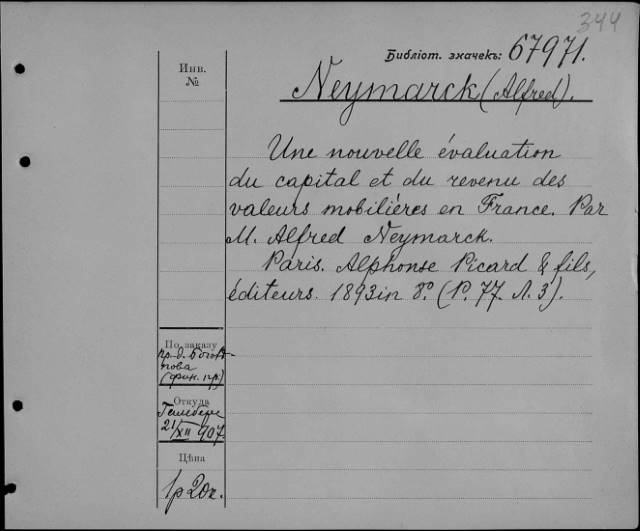 344
Библіот. значекъ: 67971.
Инв.
№
Neymarck (Alfred).
Une nouvelle évaluation
du capital et du revenu des
valeurs mobilières en France. Par
M. Alfred Neymarck.
Paris. Alphonse Picard & fils,
éditeurs. 1893 in 8º. (P. 77. Л. 3).
По заказу
пр. д.
(фин. пр.)
Откуда
21/XII 907.
Цѣна
1р 20к.